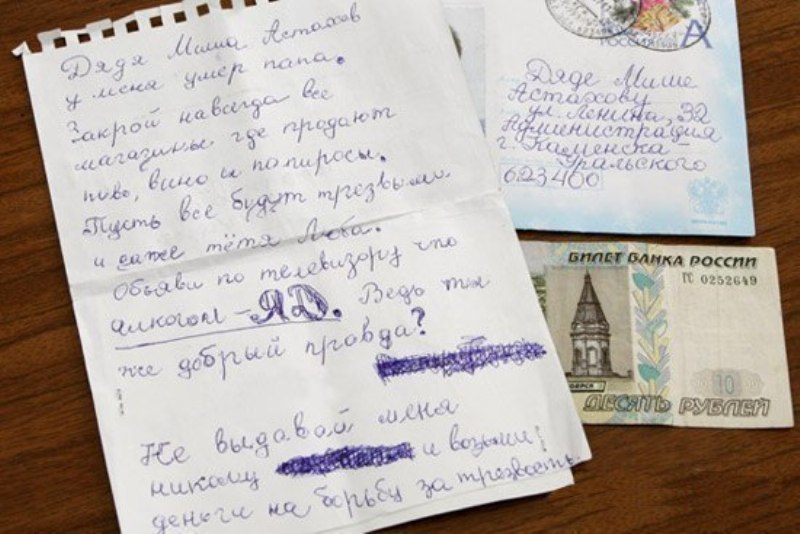 Дядя Миша Астахов
у меня умер папа.
Закрой навсегда все
магазины где продают
пиво, вино и папиросы.
Пусть все будут трезвыми
и даже тётя Люба.
Объяви по телевизору что
алкоголь – ЯД. Ведь ты
же добрый правда?
Не выдавай меня
никому и возьми
деньги на борьбу за трезвость.
РОССИЯ A
Дяде Мише
Астахову
ул. Ленина, 32
Администрация
г. Каменска-
Уральского
623400
БИЛЕТ БАНКА РОССИИ
ГС 0252649
10
ДЕСЯТЬ РУБЛЕЙ